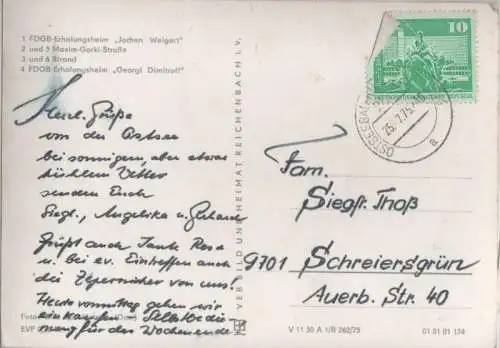 1 FDGB-Erholungsheim „Jochen Weigert"
2 und 5 Maxim-Gorki-Straße
3 und 6 Strand
4 FDGB-Erholungsheim „Georgi Dimitroff"
10
OSTSEEBAD
25.7.75
a
Herzl. Grüße
von der Ostsee
bei sonnigem, aber etwas
kühlem Wetter
senden Euch
Siegl., Angelika u. Gerhard
Grüßt auch Tante Rosa
u. bei ev. Eintreffen auch
die Zepernicker von uns!
Heute vormittag gehen wir
einkaufen Selbstbedie
nung für das Wochenende
Fam.
Siegfr. Thoß
9701 Schreiersgrün
Auerb. Str. 40
VEB BILD UND HEIMAT REICHENBACH I. V.
Foto
EVP
V 11 50 A 1/B 262/75
01 01 01 174